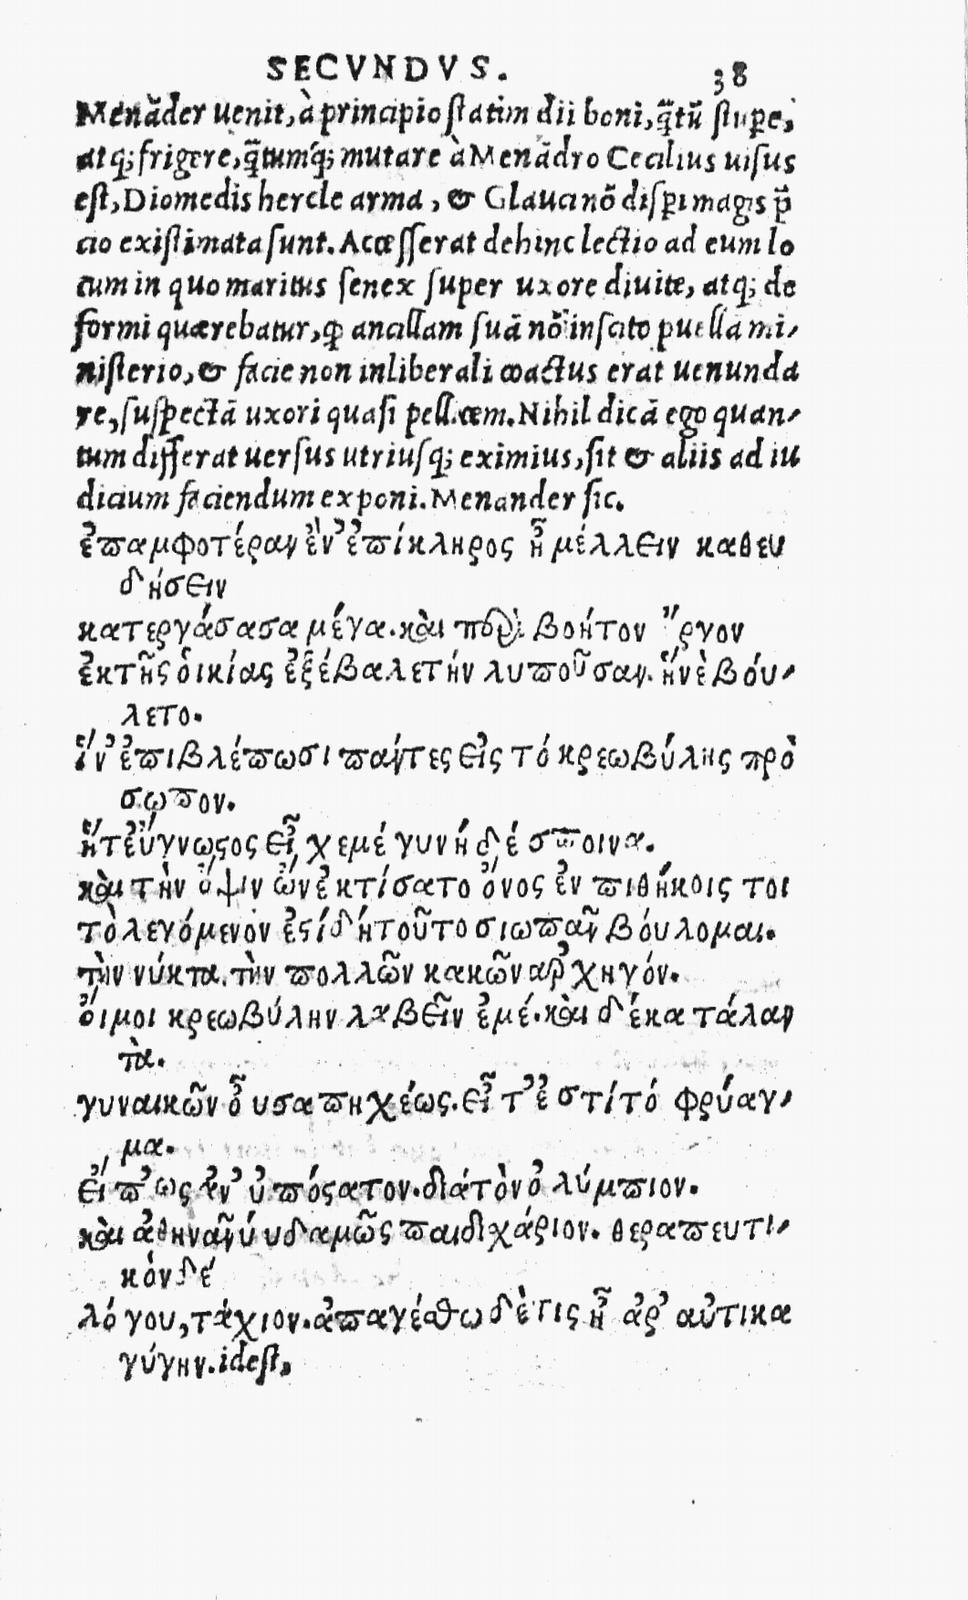 SECVNDVS. 38
Menãder uenit, à principio statim dii boni, q̃tũ stupe,
atq; frigere, q̃tumq́; mutare à Menãdro Cecilius uisus
est, Diomedis hercle arma, & Glauci nõ dispari magis p̃
cio existimata sunt. Accesserat dehinc lectio ad eum lo
cum in quo maritus senex super uxore diuite, atq; de
formi quærebatur, ꝙ ancillam suã nõ inscito puella mi-
nisterio, & facie non inliberali coactus erat uenunda
re, suspectã uxori quasi pellicem. Nihil dicã ego quan-
tum differat uersus utriusq; eximius, sit & aliis ad iu
dicium faciendum exponi. Menander sic.
ἐπαμφοτέραν ἐν᾽ ἐπίκληρος ἧ μέλλειν καθευ
δήσειν
κατεργάσασα μέγα. καὶ περὶ βοήτον ἔργον
ἐκτῆς ὀικίας ἐξέβαλετήν λυποῦσαν. ἥνὲβόυ-
λετο.
ἵν᾽ ἐπιβλέπωσι πάντες εἰς τό κρεωβύλης πρὸ
σωπον.
ἥτἐύγνωςος εἶχεμέ γυνή δέσποινα.
καὶ τὴν ὄψιν ὥνἐκτίσατο ὄνος ἐν πιθήκοις τοι
τὸ λεγόμενον ἐςίδήτοῦτο σιωπᾶν βόυλομαι.
τὴν νύκτα. τὴν πολλῶν κακῶν ἀρχηγόν.
ὄιμοι κρεωβύλην λαβεῖν ἐμέ. καὶ δέκα τάλαν
τὰ.
γυναικῶν ὅυσα πηχέως. εἶτ᾽ἐστίτό φρύαγ-
μα.
ἐί π᾽ως ἀν᾽ ὑπόςατον. διάτὸν ὀλύμπιον.
καὶ ἀθηνᾶνύυδαμῶς παιδιχάριον. θεραπευτι-
κόνδέ
λόγου, τάχιον. ἀπαγέσθω δὲτις ἢ ἀρ᾽ αὐτικα
γύγην. idest,